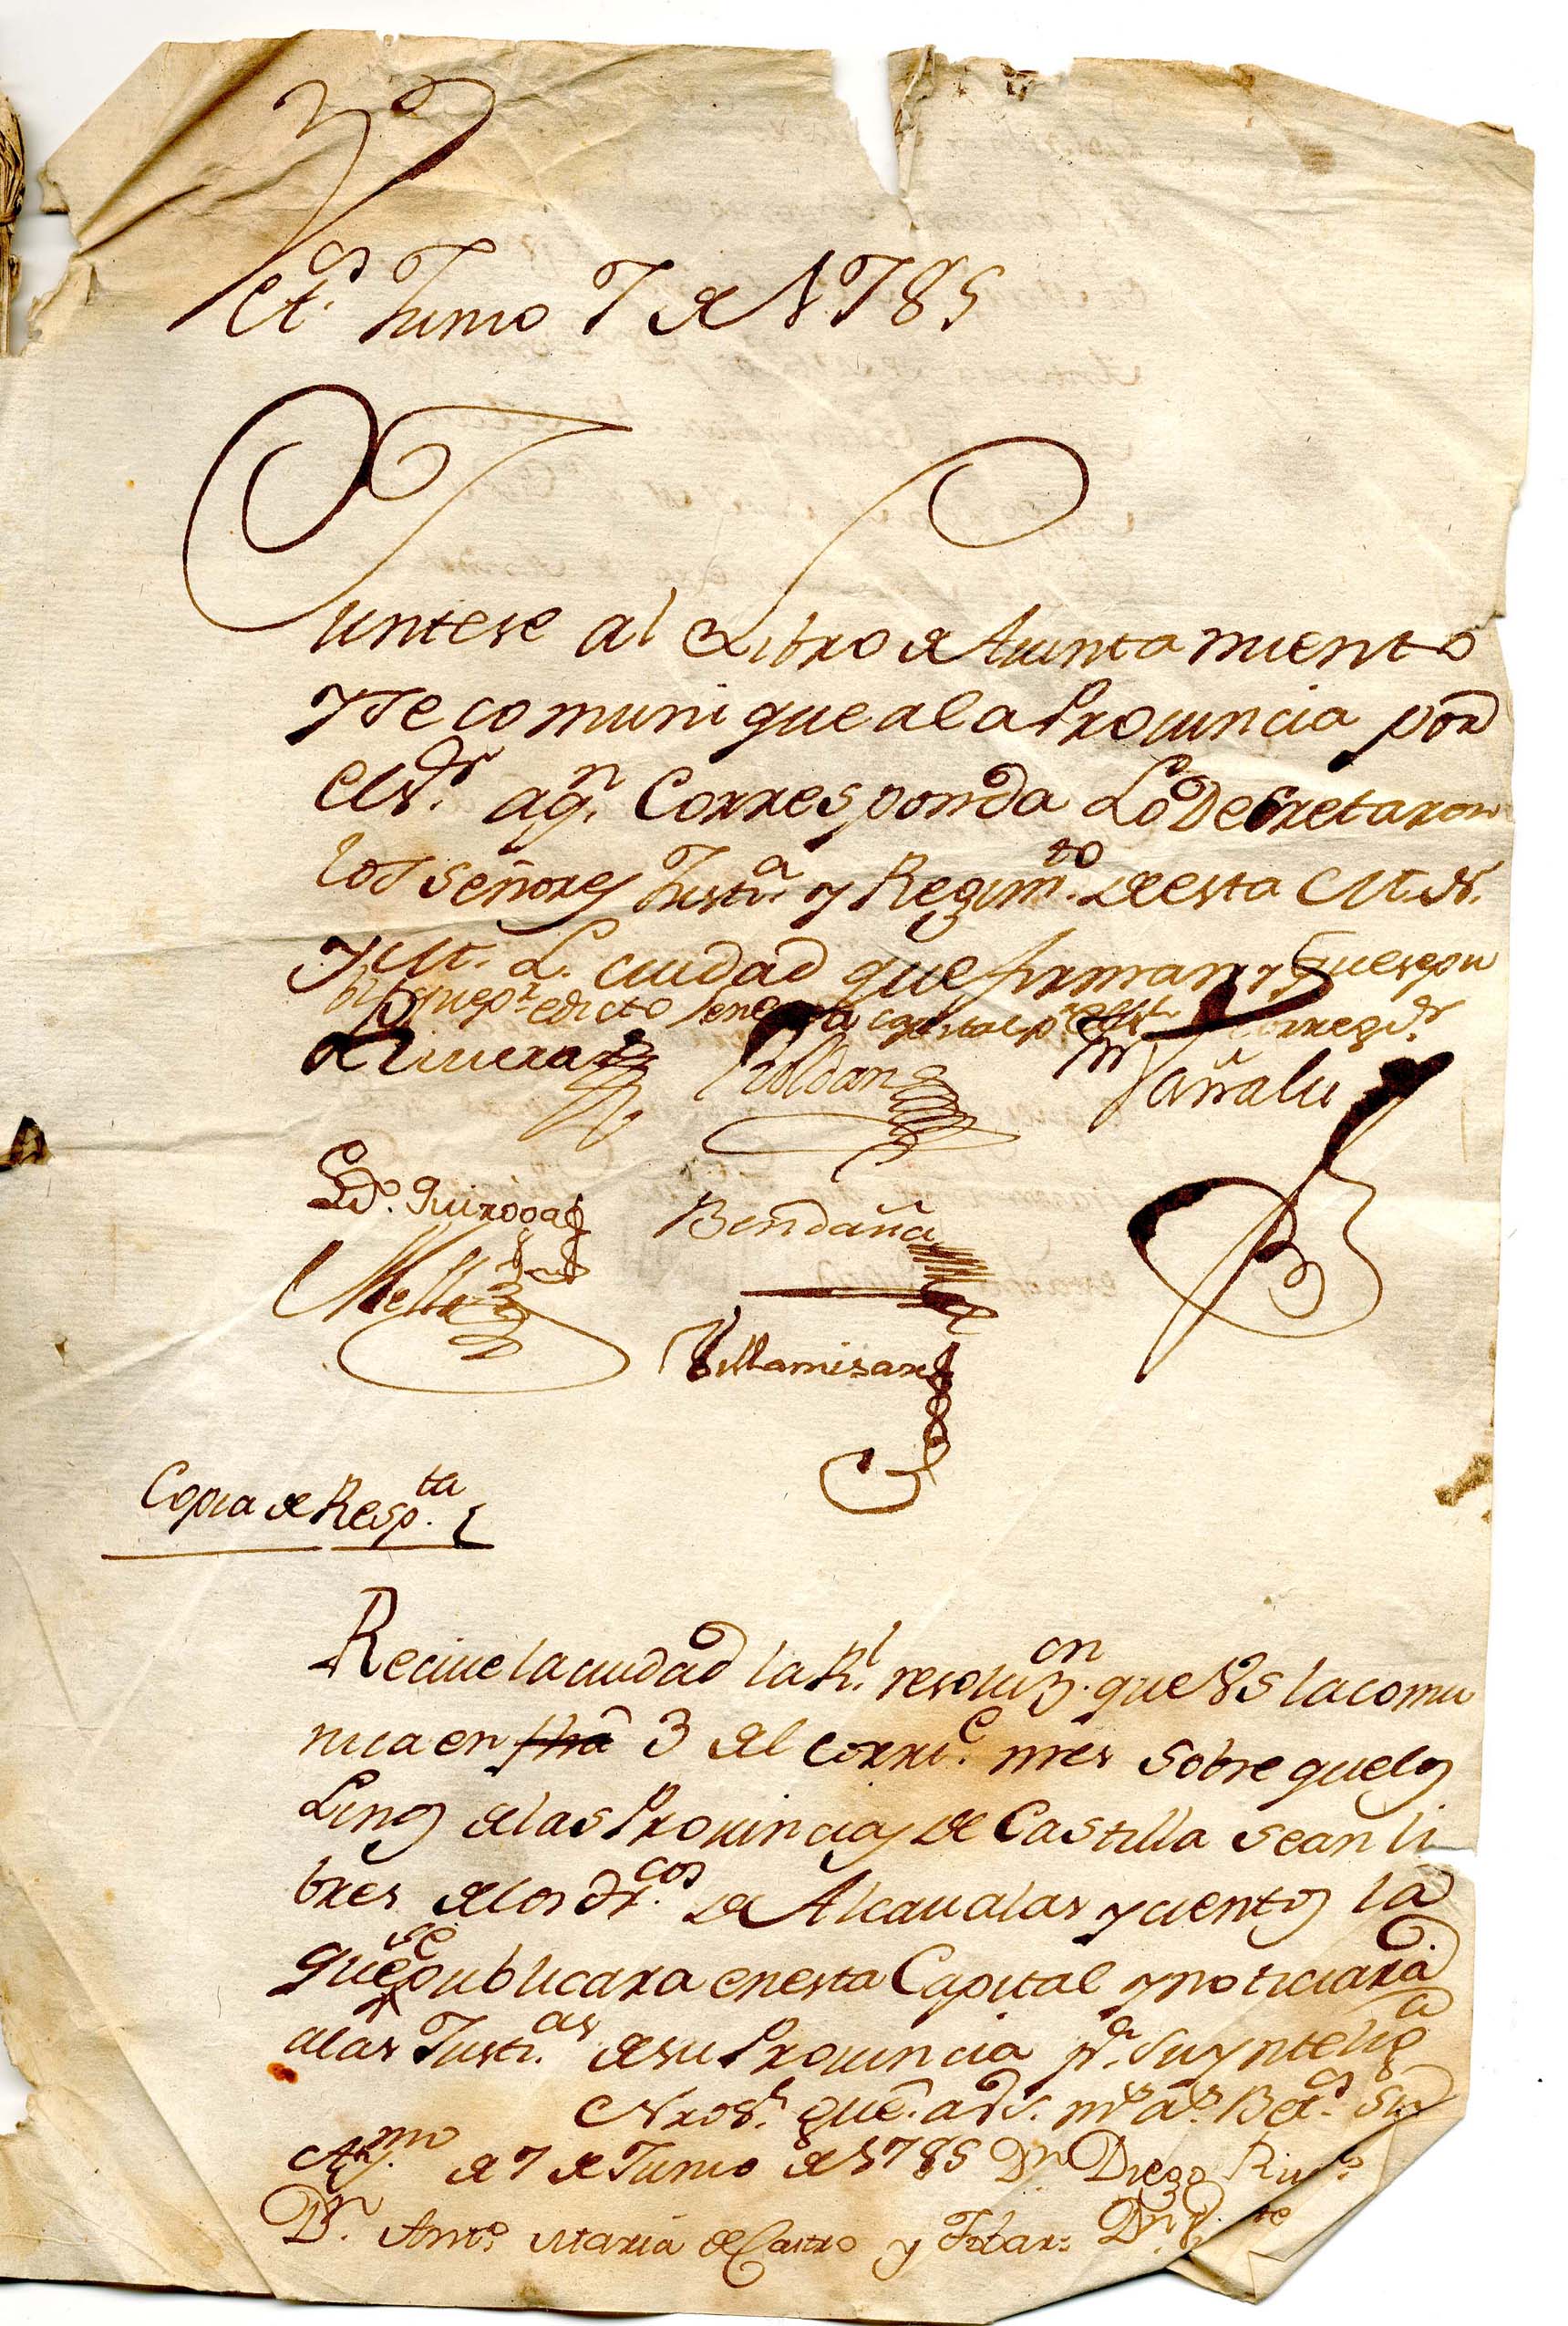 Junio 7 de 1785
Juntese al Libro de Aiuntamiento
y se comunique a la Provincia por
el Sr. a qn. Corresponda Lo Decretaron
los señores Justa. y Regimto. de esta M. N.
y M. L. ciudad que firman, y que se pu
blique pr. edicto en esta capital pr. el Sr. Corregdr.
Rivera Roldan
Ldo. Quiroga Bendaña
Mella
Villamisar
Copia de Respta.
Reciue la ciudad la Rl. resoluzon. que VS la comu
nica en fha 3 del corrte. mes sobre que los
Linos de las Provincias de Castilla sean li
bres de los dros. de Alcaualas y cientos la
que se publicara en esta Capital y noticiara
a las Justias. de su Provincia pa. su ynteliga.
Nro Sr. gue. a VS. ms. as.
Aynto. de 7 de Junio de 1785 Dn. Diego
Dn. Anto. Maria de Castro y Dn.